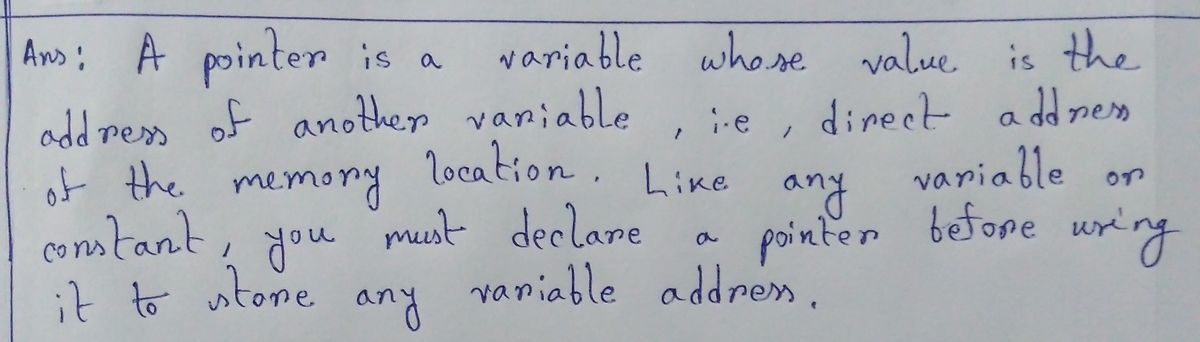 Ans: A pointer is a variable whose value is the
address of another variable, i.e, direct address
of the memory location. Like any variable or
constant, you must declare a pointer before using
it to store any variable address.